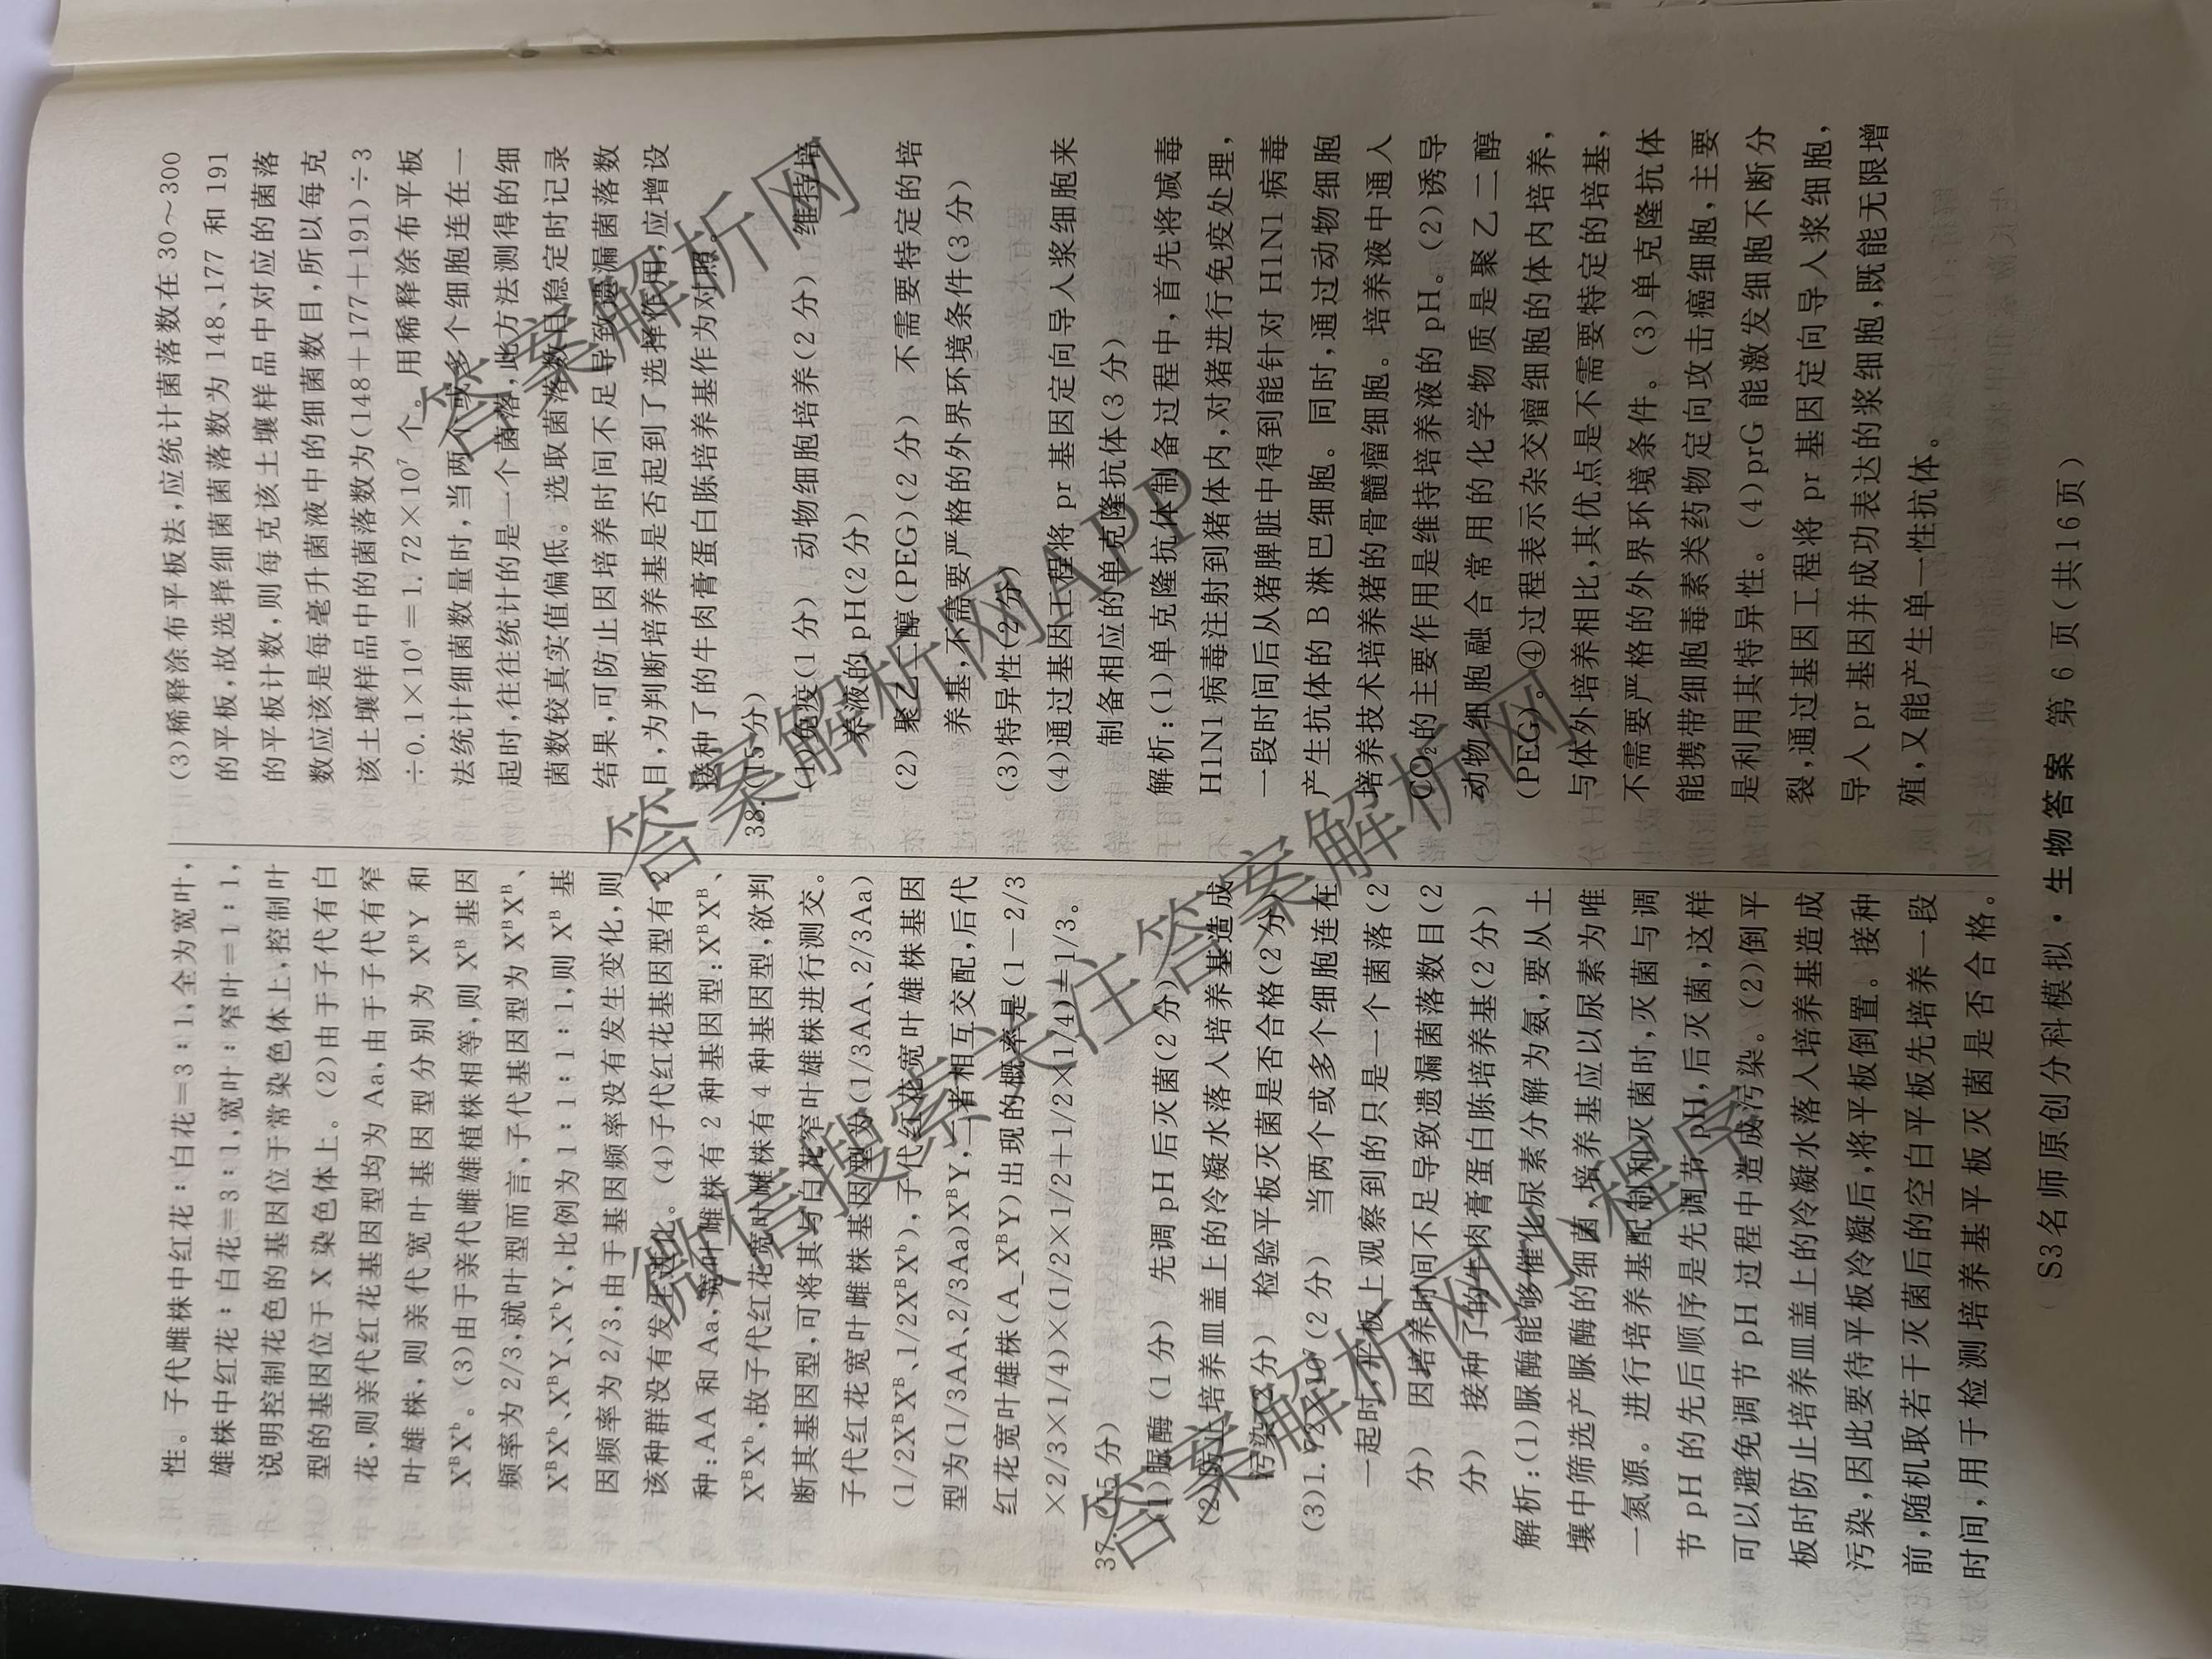 性。子代雌株中红花：白花=3：1,全为宽叶,
雄株中红花：白花=3：1,宽叶：窄叶=1：1,
说明控制花色的基因位于常染色体上,控制叶
型的基因位于 X 染色体上。(2)由于子代有白
花,则亲代红花基因型均为 Aa,由于子代有窄
叶雄株,则亲代宽叶基因型分别为 XᴮY 和
XᴮXᵇ。(3)由于亲代雌雄植株相等,则 Xᴮ 基因
频率为 2/3,就叶型而言,子代基因型为 XᴮXᴮ、
XᴮXᵇ、XᴮY、XᵇY,比例为 1：1：1：1,则 Xᴮ 基
因频率为 2/3,由于基因频率没有发生变化,则
该种群没有发生进化。(4)子代红花基因型有 2
种:AA 和 Aa,宽叶雌株有 2 种基因型:XᴮXᴮ、
XᴮXᵇ,故子代红花宽叶雌株有 4 种基因型,欲判
断其基因型,可将其与白花窄叶雄株进行测交。
子代红花宽叶雌株基因型为(1/3AA、2/3Aa)
(1/2XᴮXᴮ、1/2XᴮXᵇ),子代红花宽叶雄株基因
型为(1/3AA、2/3Aa)XᴮY,二者相互交配,后代
红花宽叶雄株(A_XᴮY)出现的概率是(1－2/3
×2/3×1/4)×(1/2×1/2+1/2×1/4)=1/3。
37.(15 分)
(1)脲酶(1 分) 先调 pH 后灭菌(2 分)
(2)防止培养皿盖上的冷凝水落入培养基造成
污染(2 分) 检验平板灭菌是否合格(2 分)
(3)1.72×10⁷(2 分) 当两个或多个细胞连在
一起时,平板上观察到的只是一个菌落(2
分) 因培养时间不足导致遗漏菌落数目(2
分) 接种了的牛肉膏蛋白胨培养基(2 分)
解析:(1)脲酶能够催化尿素分解为氨,要从土
壤中筛选产脲酶的细菌,培养基应以尿素为唯
一氮源。进行培养基配制和灭菌时,灭菌与调
节 pH 的先后顺序是先调节 pH,后灭菌,这样
可以避免调节 pH 过程中造成污染。(2)倒平
板时防止培养皿盖上的冷凝水落入培养基造成
污染,因此要待平板冷凝后,将平板倒置。接种
前,随机取若干灭菌后的空白平板先培养一段
时间,用于检测培养基平板灭菌是否合格。
(3)稀释涂布平板法,应统计菌落数在 30～300
的平板,故选择细菌菌落数为 148、177 和 191
的平板计数,则每克该土壤样品中对应的菌落
数应该是每毫升菌液中的细菌数目,所以每克
该土壤样品中的菌落数为(148＋177＋191)÷3
÷0.1×10⁴＝1.72×10⁷ 个。用稀释涂布平板
法统计细菌数量时,当两个或多个细胞连在一
起时,往往统计的是一个菌落,此方法测得的细
菌数较真实值偏低。选取菌落数目稳定时记录
结果,可防止因培养时间不足导致遗漏菌落数
目,为判断培养基是否起到了选择作用,应增设
接种了的牛肉膏蛋白胨培养基作为对照。
38.(15 分)
(1)免疫(1 分) 动物细胞培养(2 分) 维持培
养液的 pH(2 分)
(2) 聚乙二醇(PEG)(2 分) 不需要特定的培
养基,不需要严格的外界环境条件(3 分)
(3)特异性(2 分)
(4)通过基因工程将 pr 基因定向导入浆细胞来
制备相应的单克隆抗体(3 分)
解析:(1)单克隆抗体制备过程中,首先将减毒
H1N1 病毒注射到猪体内,对猪进行免疫处理,
一段时间后从猪脾脏中得到能针对 H1N1 病毒
产生抗体的 B 淋巴细胞。同时,通过动物细胞
培养技术培养猪的骨髓瘤细胞。培养液中通入
CO₂的主要作用是维持培养液的 pH。(2)诱导
动物细胞融合常用的化学物质是聚乙二醇
(PEG)。④过程表示杂交瘤细胞的体内培养,
与体外培养相比,其优点是不需要特定的培基,
不需要严格的外界环境条件。(3)单克隆抗体
能携带细胞毒素类药物定向攻击癌细胞,主要
是利用其特异性。(4)prG 能激发细胞不断分
裂,通过基因工程将 pr 基因定向导入浆细胞,
导入 pr 基因并成功表达的浆细胞,既能无限增
殖,又能产生单一性抗体。
(S3 名师原创分科模拟·生物答案 第 6 页(共16页)
答案解析网
答案解析网APP
微信搜索关注答案解析网
答案解析网小程序